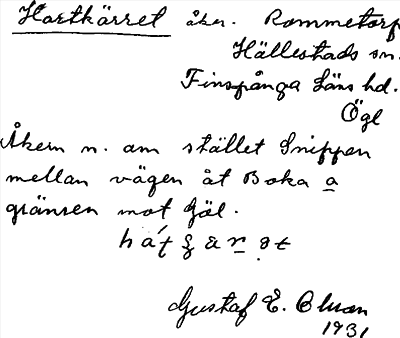 Hartkärret åker. Rommetorp
Hällestads sn.
Finspånga läns hd.
Ögl
Åkern n. om stället Snippen
mellan vägen åt Boka a
gränsen mot Göl.
Gustaf E.
1931